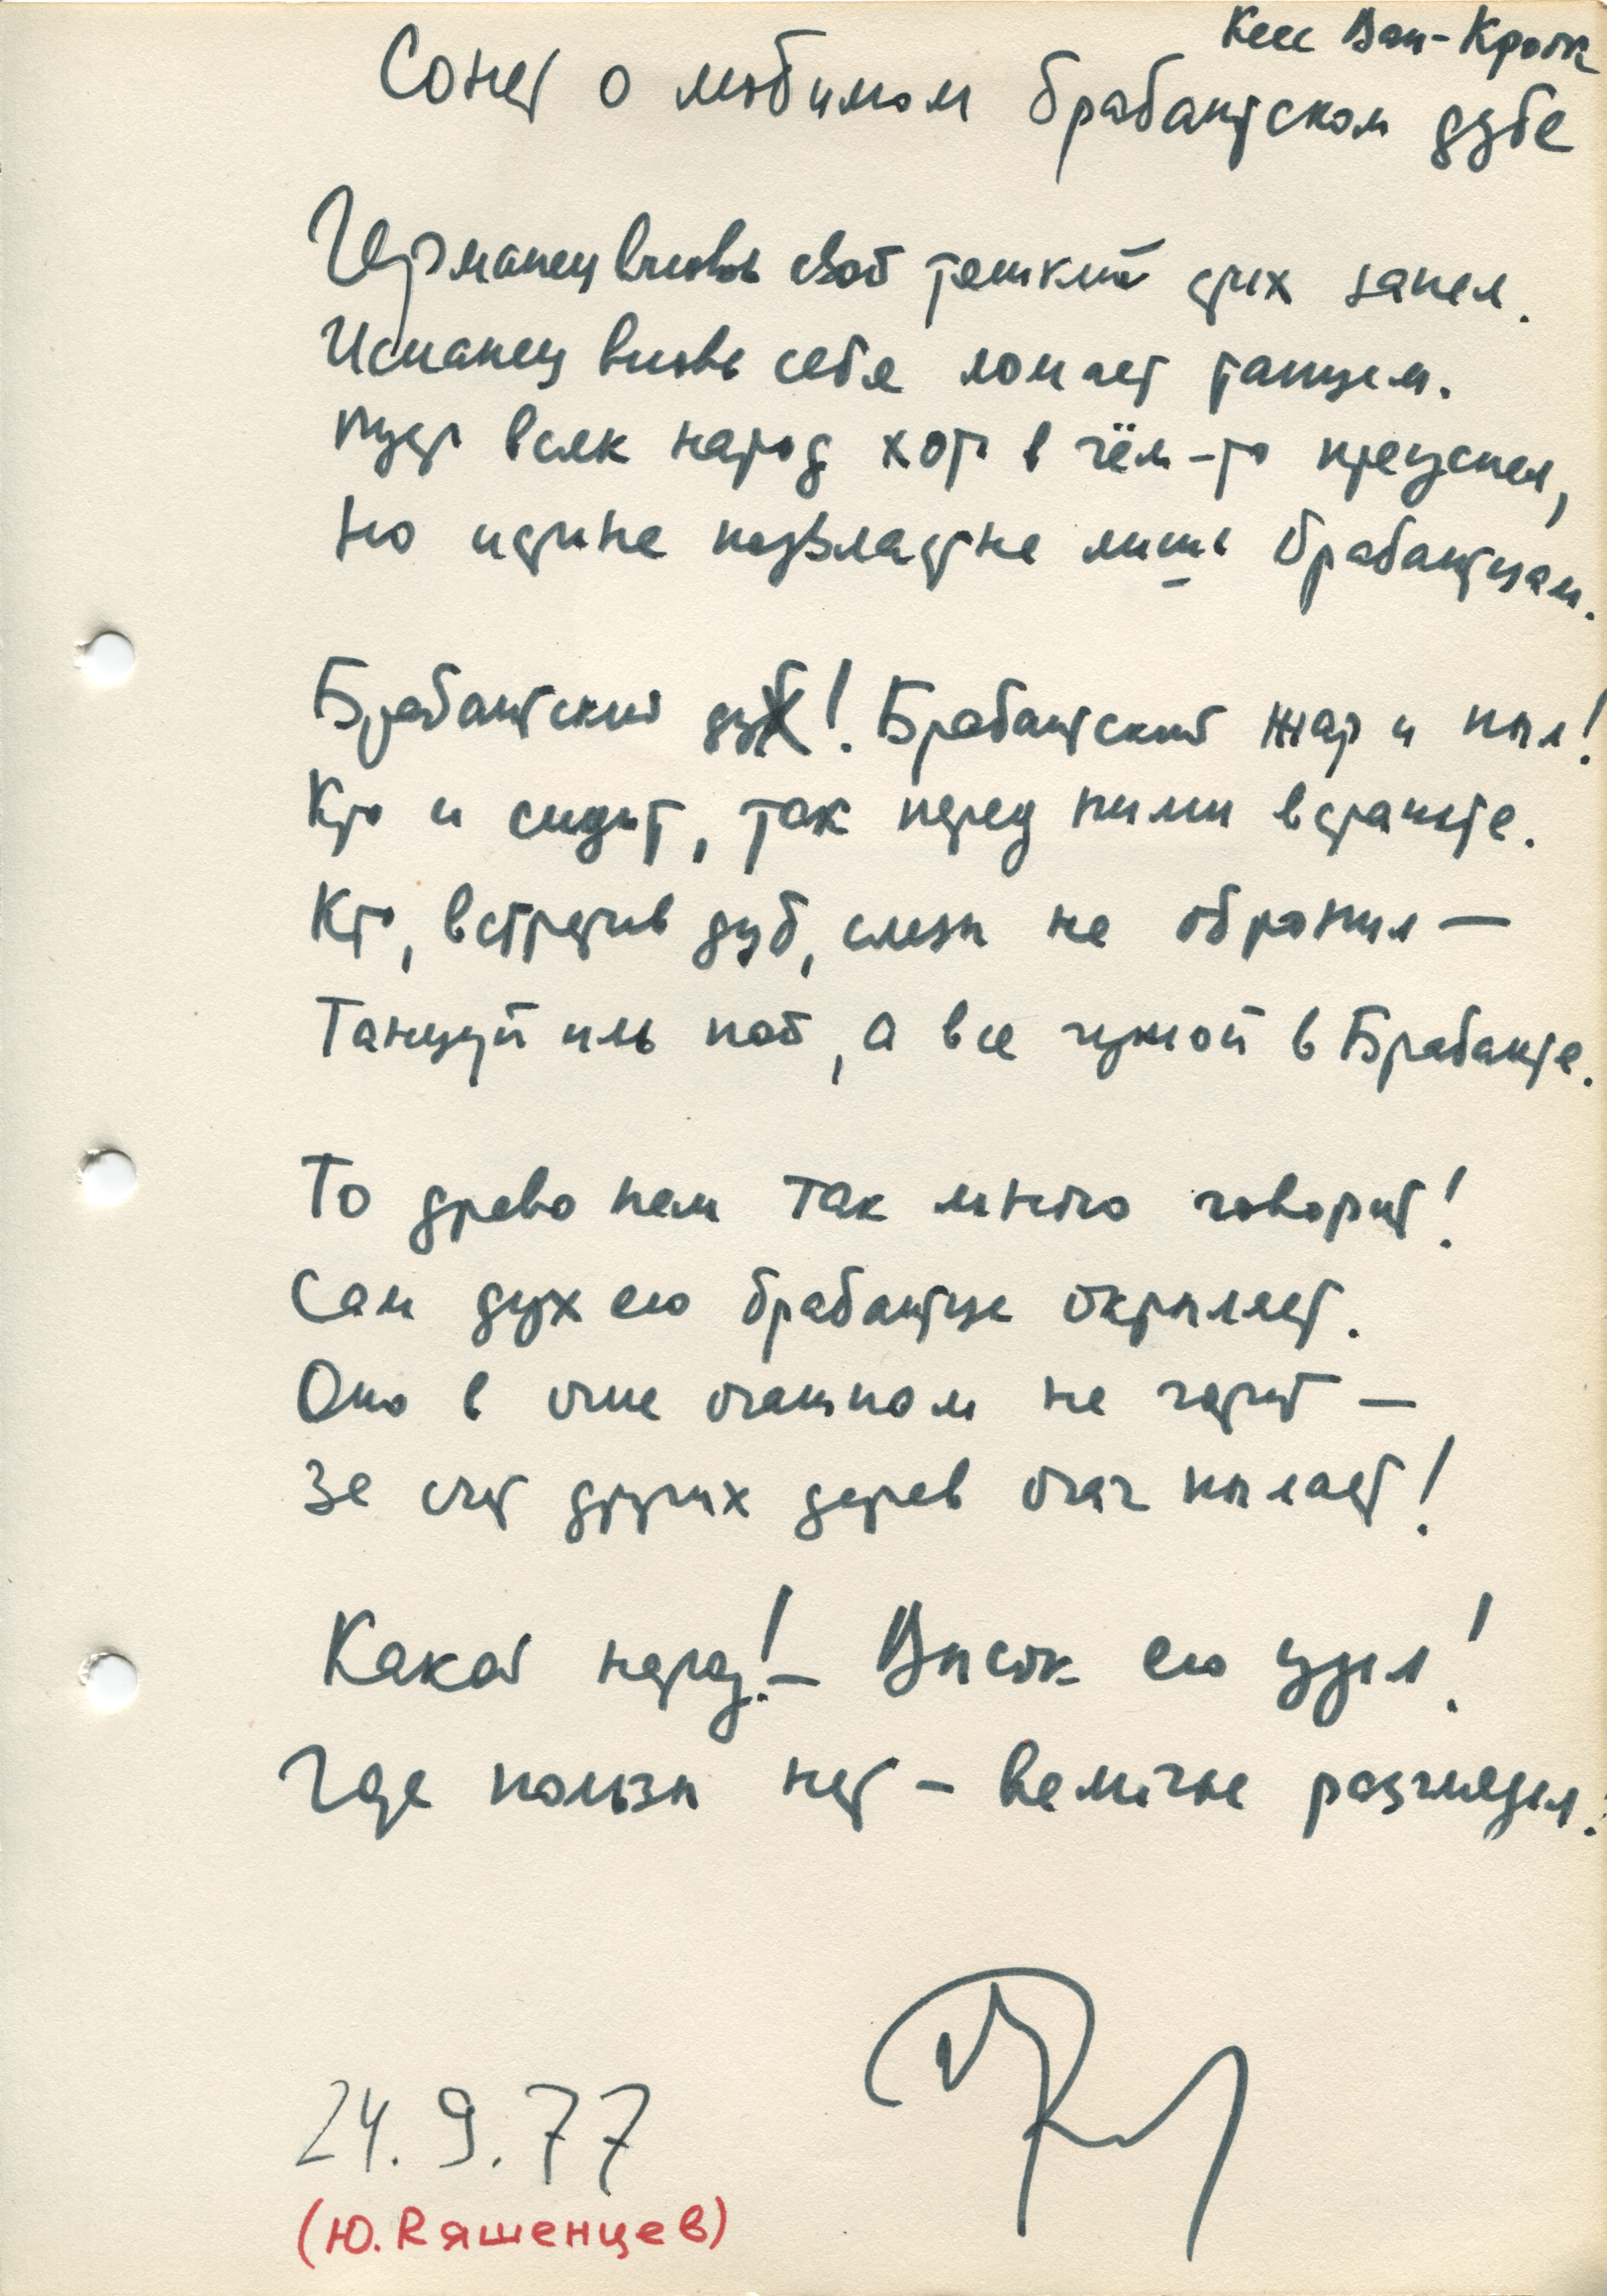 Кеес Ван-Кроок
Сонет о любимом брабантском дубе
Германец вновь свой тяжкий стих запел.
Испанец вновь себя ломает танцем.
Пусть всяк народ хоть в чём-то преуспел,
Но истине подвластне лишь брабантцам.
Брабантский дуб! Брабантский жар и пыл!
Кто и сидит, так перед ними встаньте.
Кто, встретив дуб, слезы не обронил —
Танцуй иль пой, а все чужой в Брабанте.
То древо нам так много говорит!
Сам дух его брабантца окрыляет.
Оно в огне очажном не горит —
За счет других дерев очаг пылает!
Какой народ! — Высок его удел!
Где пользы нет — величье разглядел!
24.9.77
(Ю. Ряшенцев)